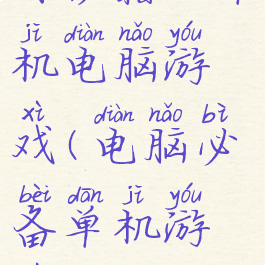 jī diàn nǎo yóu
机电脑游
xì diàn nǎo bì
戏(电脑必
bèi dān jī yóu
备单机游